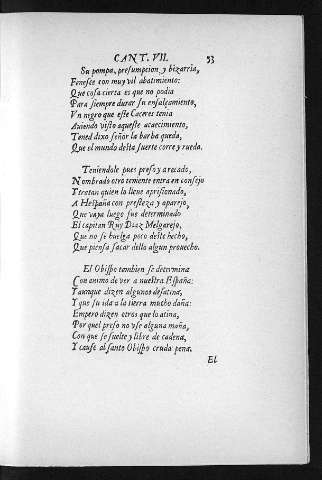 CANT. VII. 53
Su pompa, presumpcion y bizarria,
Fenesce con muy vil abatimiento:
Que cosa cierta es que no podia
Para siempre durar su ensalçamiento,
Vn negro que este Caceres tenia
Auiendo visto aqueste acaecimiento,
Tened dixo señor la barba queda,
Que el mundo desta suerte corre y rueda.
Teniendole pues preso y arecado,
Nombrado otro teniente entra en consejo
Ytratan quien lo lieue aprisionado,
A Hespaña con presteza y aparejo,
Que vaya luego fue determinado
El capitan Ruy Diaz Melgarejo,
Que no se huelga poco deste hecho,
Que piensa sacar dello algun prouecho.
El Obispo tambien se determina
Con animo de ver a nuestra España:
Yaunque dizen algunos desatina,
Y que su ida a la tierra mucho daña:
Empero dizen otros que lo atina,
Por quel preso no vse alguna maña,
Con que se suelte y libre de cadena,
Y cause al santo Obispo cruda pena.
El